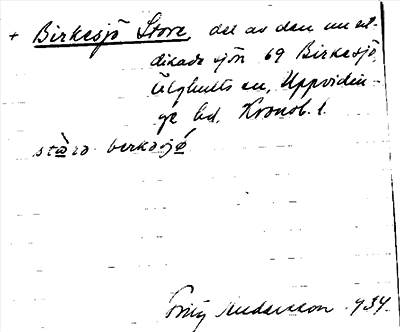 + Birkesjö Store, del av den nu ut-
dikade sjön 69 Birkesjö,
Älghults sn, Uppvidin-
ge hd, Kronob. l.
stɷrɷ berkəsjø
Fritz Andersson 1934.